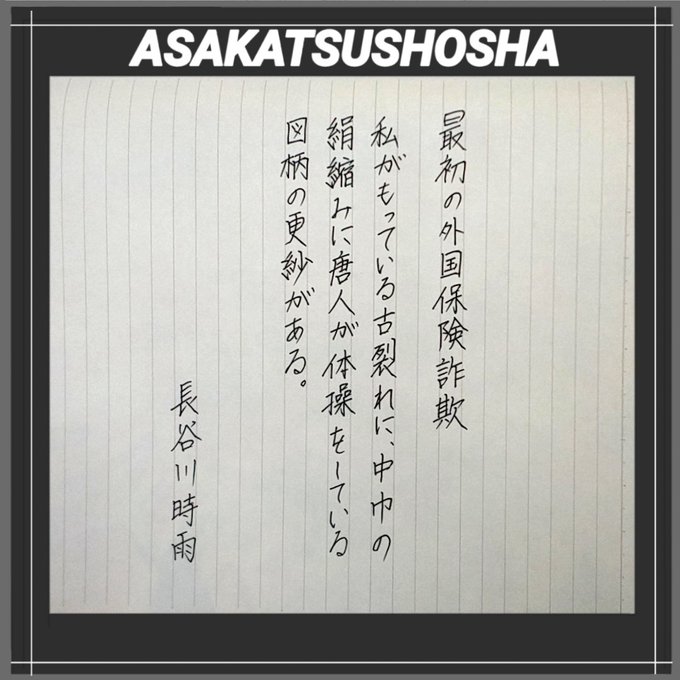 ASAKATSUSHOSHA
最初の外国保険詐欺
私がもっている古裂れに、中巾の
絹縮みに唐人が体操をしている
図柄の更紗がある。
長谷川時雨